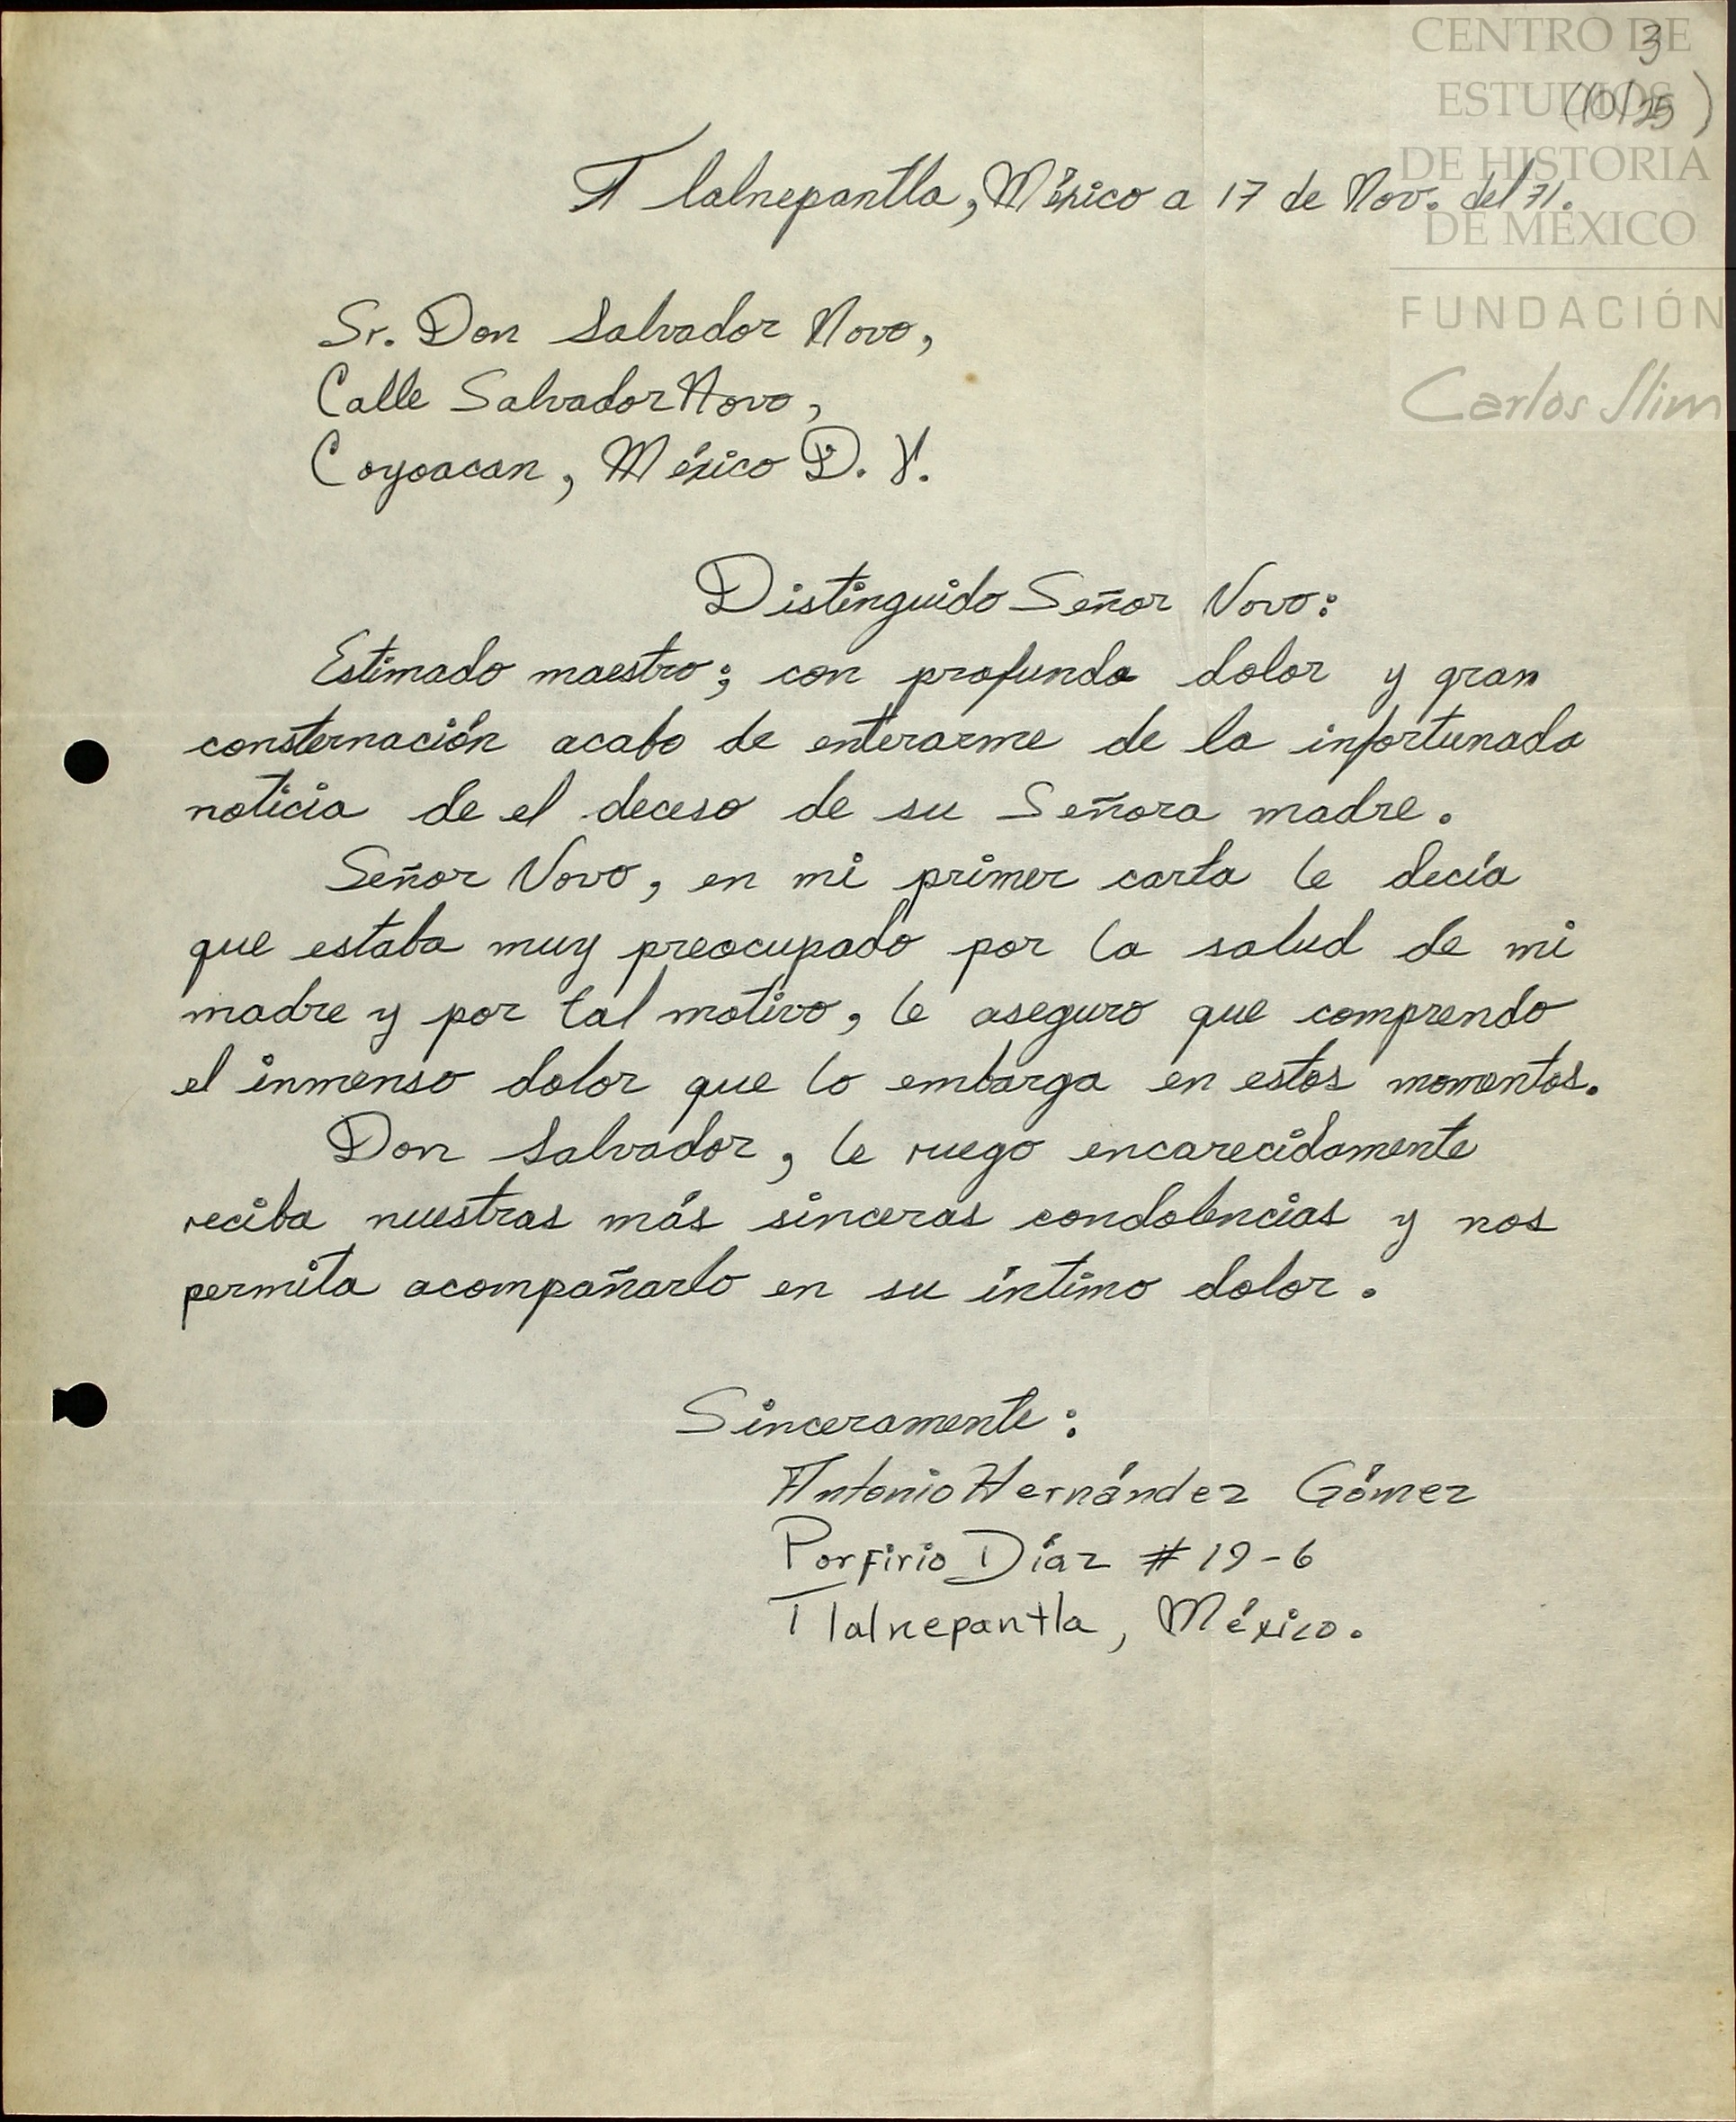 CENTRO DE
ESTUDIOS
DE HISTORIA
DE MÉXICO
FUNDACIÓN
Carlos Slim
3
(10/25)
Tlalnepantla, México a 17 de Nov. del 71.
Sr. Don Salvador Novo,
Calle Salvador Novo,
Coyoacan, México D. F.
Distinguido Señor Novo:
Estimado maestro; con profunda dolor y gran
consternación acabo de enterarme de la infortunada
noticia de el deceso de su Señora madre.
Señor Novo, en mi primer carta le decía
que estaba muy preocupado por la salud de mi
madre y por tal motivo, le aseguro que comprendo
el inmenso dolor que lo embarga en estos momentos.
Don Salvador, le ruego encarecidamente
reciba nuestras más sinceras condolencias y nos
permita acompañarlo en su íntimo dolor.
Sinceramente:
Antonio Hernández Gómez
Porfirio Díaz # 19-6
Tlalnepantla, México.